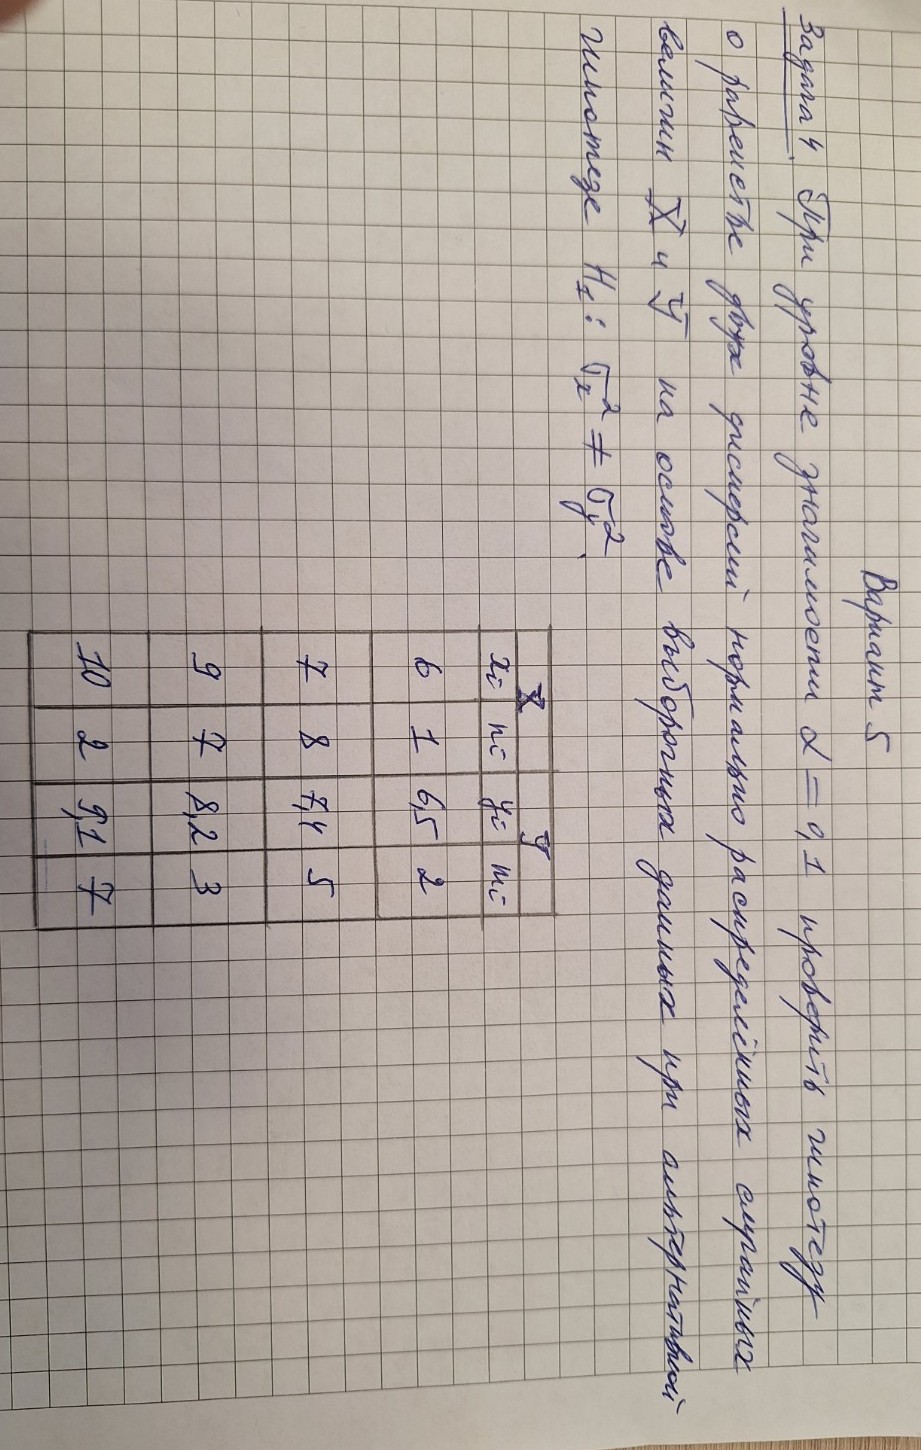 Вариант 5
Задача 4. При уровне значимости α = 0,1 проверить гипотезу
о равенстве двух дисперсий нормально распределённых случайных
величин X и Y на основе выборочных данных при альтернативной
гипотезе H₁: σₓ² ≠ σᵧ².
X Y
xi ni yi mi
6 1 6,5 2
7 8 7,4 5
9 7 8,2 3
10 2 9,1 7